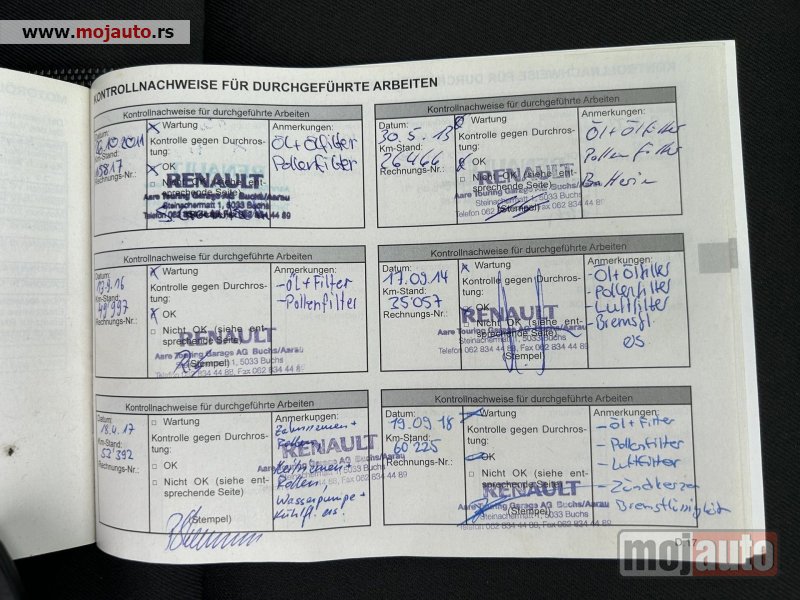 www.mojauto.rs
KONTROLLNACHWEISE FÜR DURCHGEFÜHRTE ARBEITEN
Kontrollnachweise für durchgeführte Arbeiten
Datum:
10.2011
Km-Stand:
15817
Rechnungs-Nr.:
Wartung
Kontrolle gegen Durchros-
tung:
OK
Nicht OK (siehe ent-
sprechende Seite)
RENAULT
Aare Touring Garage AG Buchs/Aarau
Steinachermatt 1, 5033 Buchs
Telefon 062 834 44 88, Fax 062 834 44 89
Anmerkungen:
Öl+Ölfilter
Pollenfilter
Kontrollnachweise für durchgeführte Arbeiten
Datum:
30.5.13
Km-Stand:
26466
Rechnungs-Nr.:
Wartung
Kontrolle gegen Durchros-
tung:
OK
Nicht OK (siehe ent-
sprechende Seite)
RENAULT
Aare Touring Garage AG Buchs/Aarau
Steinachermatt 1, 5033 Buchs
(Stempel)
Telefon 062 834 44 88, Fax 062 834 44 89
Anmerkungen:
Öl+Ölfilter
Pollen Filter
Batterie
Kontrollnachweise für durchgeführte Arbeiten
Datum:
9.16
Km-Stand:
49'997
Rechnungs-Nr.:
Wartung
Kontrolle gegen Durchros-
tung:
OK
Nicht OK (siehe ent-
sprechende Seite)
RENAULT
Aare Touring Garage AG Buchs/Aarau
Steinachermatt 1, 5033 Buchs
(Stempel)
Telefon 062 834 44 88, Fax 062 834 44 89
Anmerkungen:
-Öl+Filter
-Pollenfilter
Kontrollnachweise für durchgeführte Arbeiten
Datum:
17.09.14
Km-Stand:
25'057
Rechnungs-Nr.:
Wartung
Kontrolle gegen Durchros-
tung:
OK
Nicht OK (siehe ent-
sprechende Seite)
RENAULT
Aare Touring Garage AG Buchs/Aarau
Steinachermatt 1, 5033 Buchs
Telefon 062 834 44 88, Fax 062 834 44 89
(Stempel)
Anmerkungen:
-Öl+Ölfilter
-Pollenfilter
-Luftfilter
-Bremsfl.
Kontrollnachweise für durchgeführte Arbeiten
Datum:
18.4.17
Km-Stand:
52'392
Rechnungs-Nr.:
Wartung
Kontrolle gegen Durchros-
tung:
OK
Nicht OK (siehe ent-
sprechende Seite)
(Stempel)
Anmerkungen:
Zahnriemen+
Rollen,
Keilriemen+
Rollen,
Wasserpumpe+
Kühlfl. ers.!
RENAULT
Aare Touring Garage AG Buchs/Aarau
Steinachermatt 1, 5033 Buchs
Kontrollnachweise für durchgeführte Arbeiten
Datum:
19.09.18
Km-Stand:
60'225
Rechnungs-Nr.:
Wartung
Kontrolle gegen Durchros-
tung:
OK
Nicht OK (siehe ent-
sprechende Seite)
RENAULT
Aare Touring Garage AG Buchs/Aarau
(Stempel)
Steinachermatt 1, 5033 Buchs
Telefon 062 834 44 88, Fax 062 834 44 89
Anmerkungen:
-Öl+Filter
-Pollenfilter
-Luftfilter
-Zündkerzen
Bremsflüssigkeit
D.17
mojauto